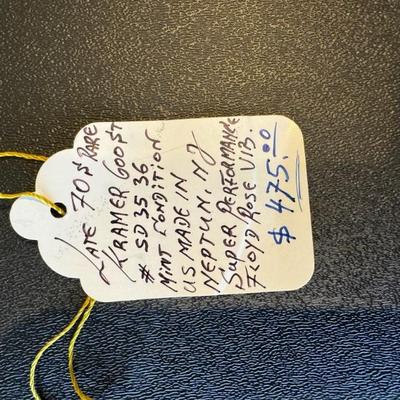 LATE 70S RARE
KRAMER 600ST
# SD3536
MINT CONDITION
US MADE IN
NEPTUN, NJ
SUPER PERFORMANCE
FLOYD ROSE VIB.
$ 475.00